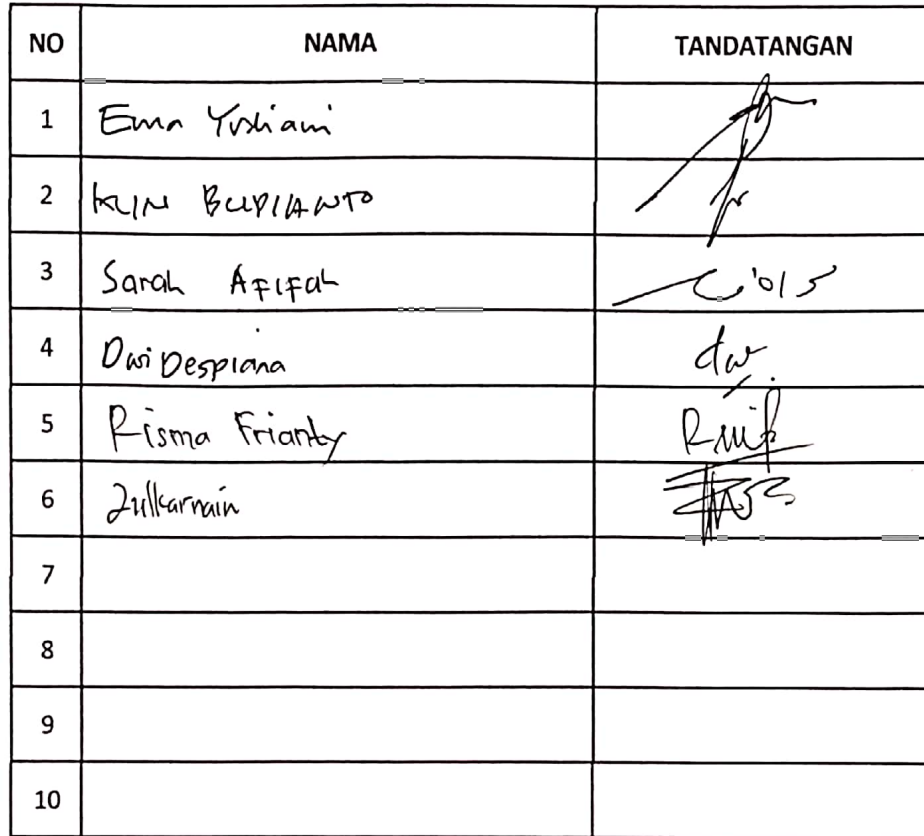 NO NAMA TANDATANGAN
1 Erna Yusliani
2 KUN BUDIANTO
3 Sarah AFIFah
4 Dwi Despiana
5 Risma Frianty
6 Zulkarnain
7
8
9
10